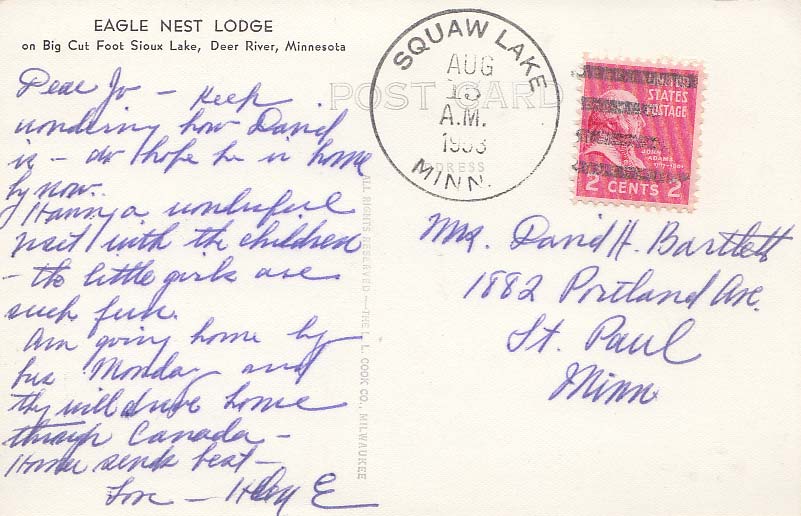 EAGLE NEST LODGE
on Big Cut Foot Sioux Lake, Deer River, Minnesota
Dear Jo - Keep
wondering how David
is - do hope he is home
by now.
Having a wonderful
visit with the children
- the little girls are
such fun.
Am going home by
bus Monday and
they will drive home
through Canada -
sends best -
Love - E
POST CARD
ADDRESS
ALL RIGHTS RESERVED - THE L. L. COOK CO., MILWAUKEE
SQUAW LAKE
AUG
A.M.
1953
MINN.
UNITED
STATES
POSTAGE
JOHN
ADAMS
2 CENTS 2
Mrs. David H. Bartlett
1882 Portland Ave.
St. Paul
Minn